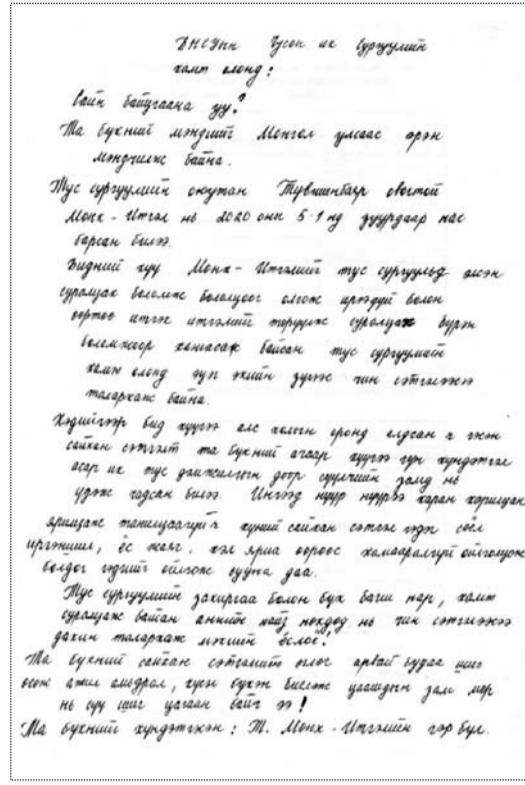 БНСУын Чусон их сургуулийн
хамт олонд:
Сайн байцгаана уу?
Та бүхнийг мэндийг Монгол улсаас эрэн
мэндчилж байна.
Тус сургуулийн оюутан Түвшинбаяр овогтой
Мөнх-Итгэл нь 2020 оны 5-1 нд зуурдаар нас
барсан билээ.
Бидний хүү Мөнх-Итгэлийг тус сургуульд элсэн
суралцах боломж бололцоог олгож ирээдүй болон
өөртөө итгэх итгэлийг төрүүлж суралцах бүрэн
боломжоор хангасан байсан тус сургуулийн
хамт олонд эцэг эхийн зүгээс чин сэтгэлээсээ
талархаж байна.
Хэдийгээр бид хүүгээ алс холын оронд алдсан ч гэсэн
сайхан сэтгэлт та бүхний ачаар хүүгээ гүн хүндэтгэл
асар их тус дэмжлэгийн доор сүүлчийн замд нь
үдэж гадсан билээ. Ингээд нүүр нүүрээ харан харилцан
ярилцаж танилцаагүй ч хүний сайхан сэтгэл гэдэг соёл
иргэншил, ёс жаяг, хэл яриа өөрөөс хамааралгүй ойлголцож
болдог гэдгийг ойлгож сууна даа.
Тус сургуулийн захиргаа болон бүх багш нар, хамт
суралцаж байсан ангийн найз нөхдөд нь чин сэтгэлээсээ
дахин талархаж мэхийн ёслоё!
Та бүхний сайхан сэтгэлийн өглөг арвай будаа шиг
өсөж ажил амьдрал, хүсэн бүхэн биелэж цаашдын зам мөр
нь сүү шиг цагаан байг ээ!
Та бүхнийг хүндэтгэсэн: Т. Мөнх-Итгэлийн гэр бүл.